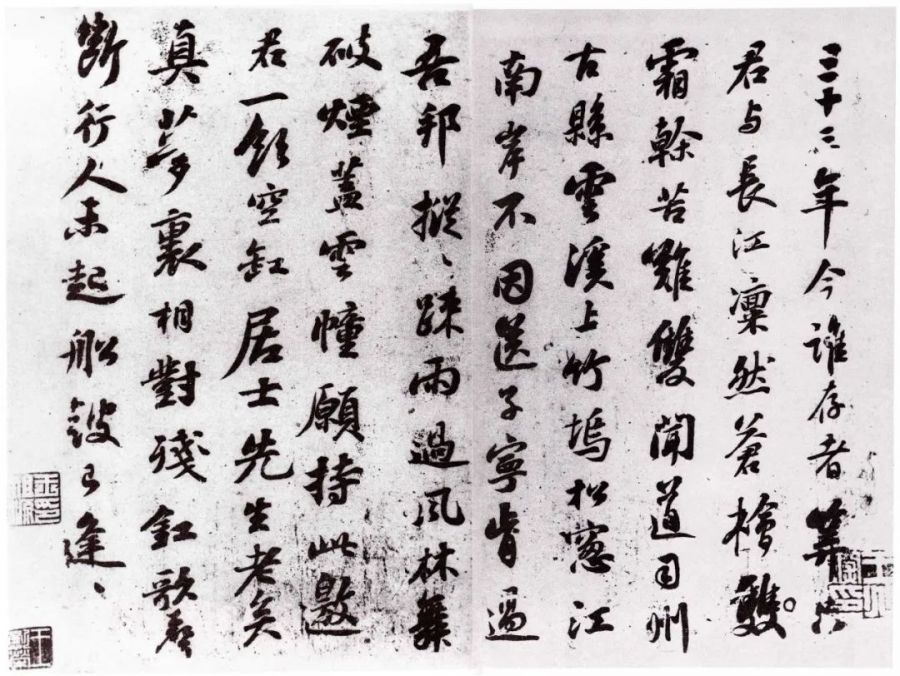 三十三年今誰存者筭只
君与長江凜然蒼檜雙
霜幹苦難雙聞道司州
古縣雲溪上竹塢松窓江
南岸不因送子寧肯過
吾邦摐、踈雨過風林舞
破煙蓋雲幢願持此邀
君一飲空缸居士先生老矣
真夢裏相對殘釭歌聲
斷行人未起船鼓已逢、